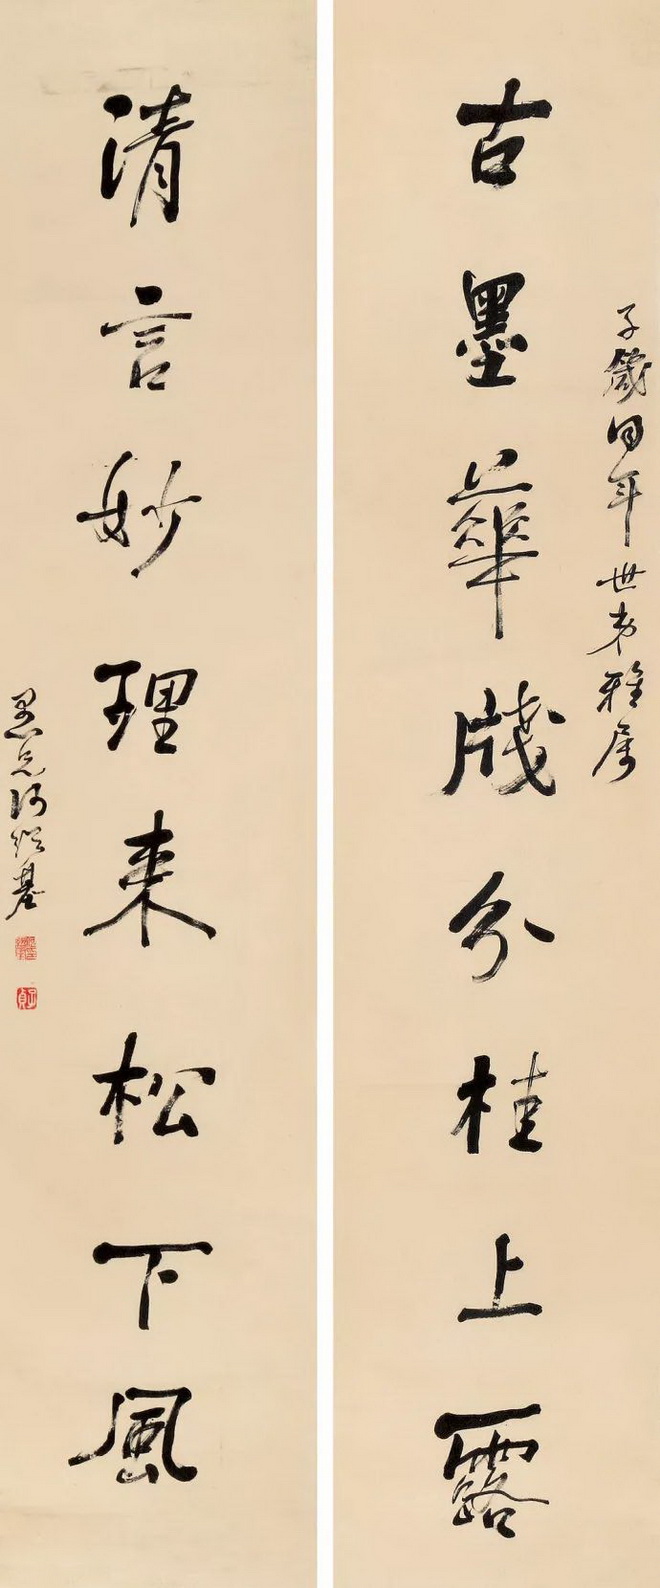 子箴同年世弟雅属
古墨華牋分桂上露
清言妙理來松下風
愚兄何紹基
子貞